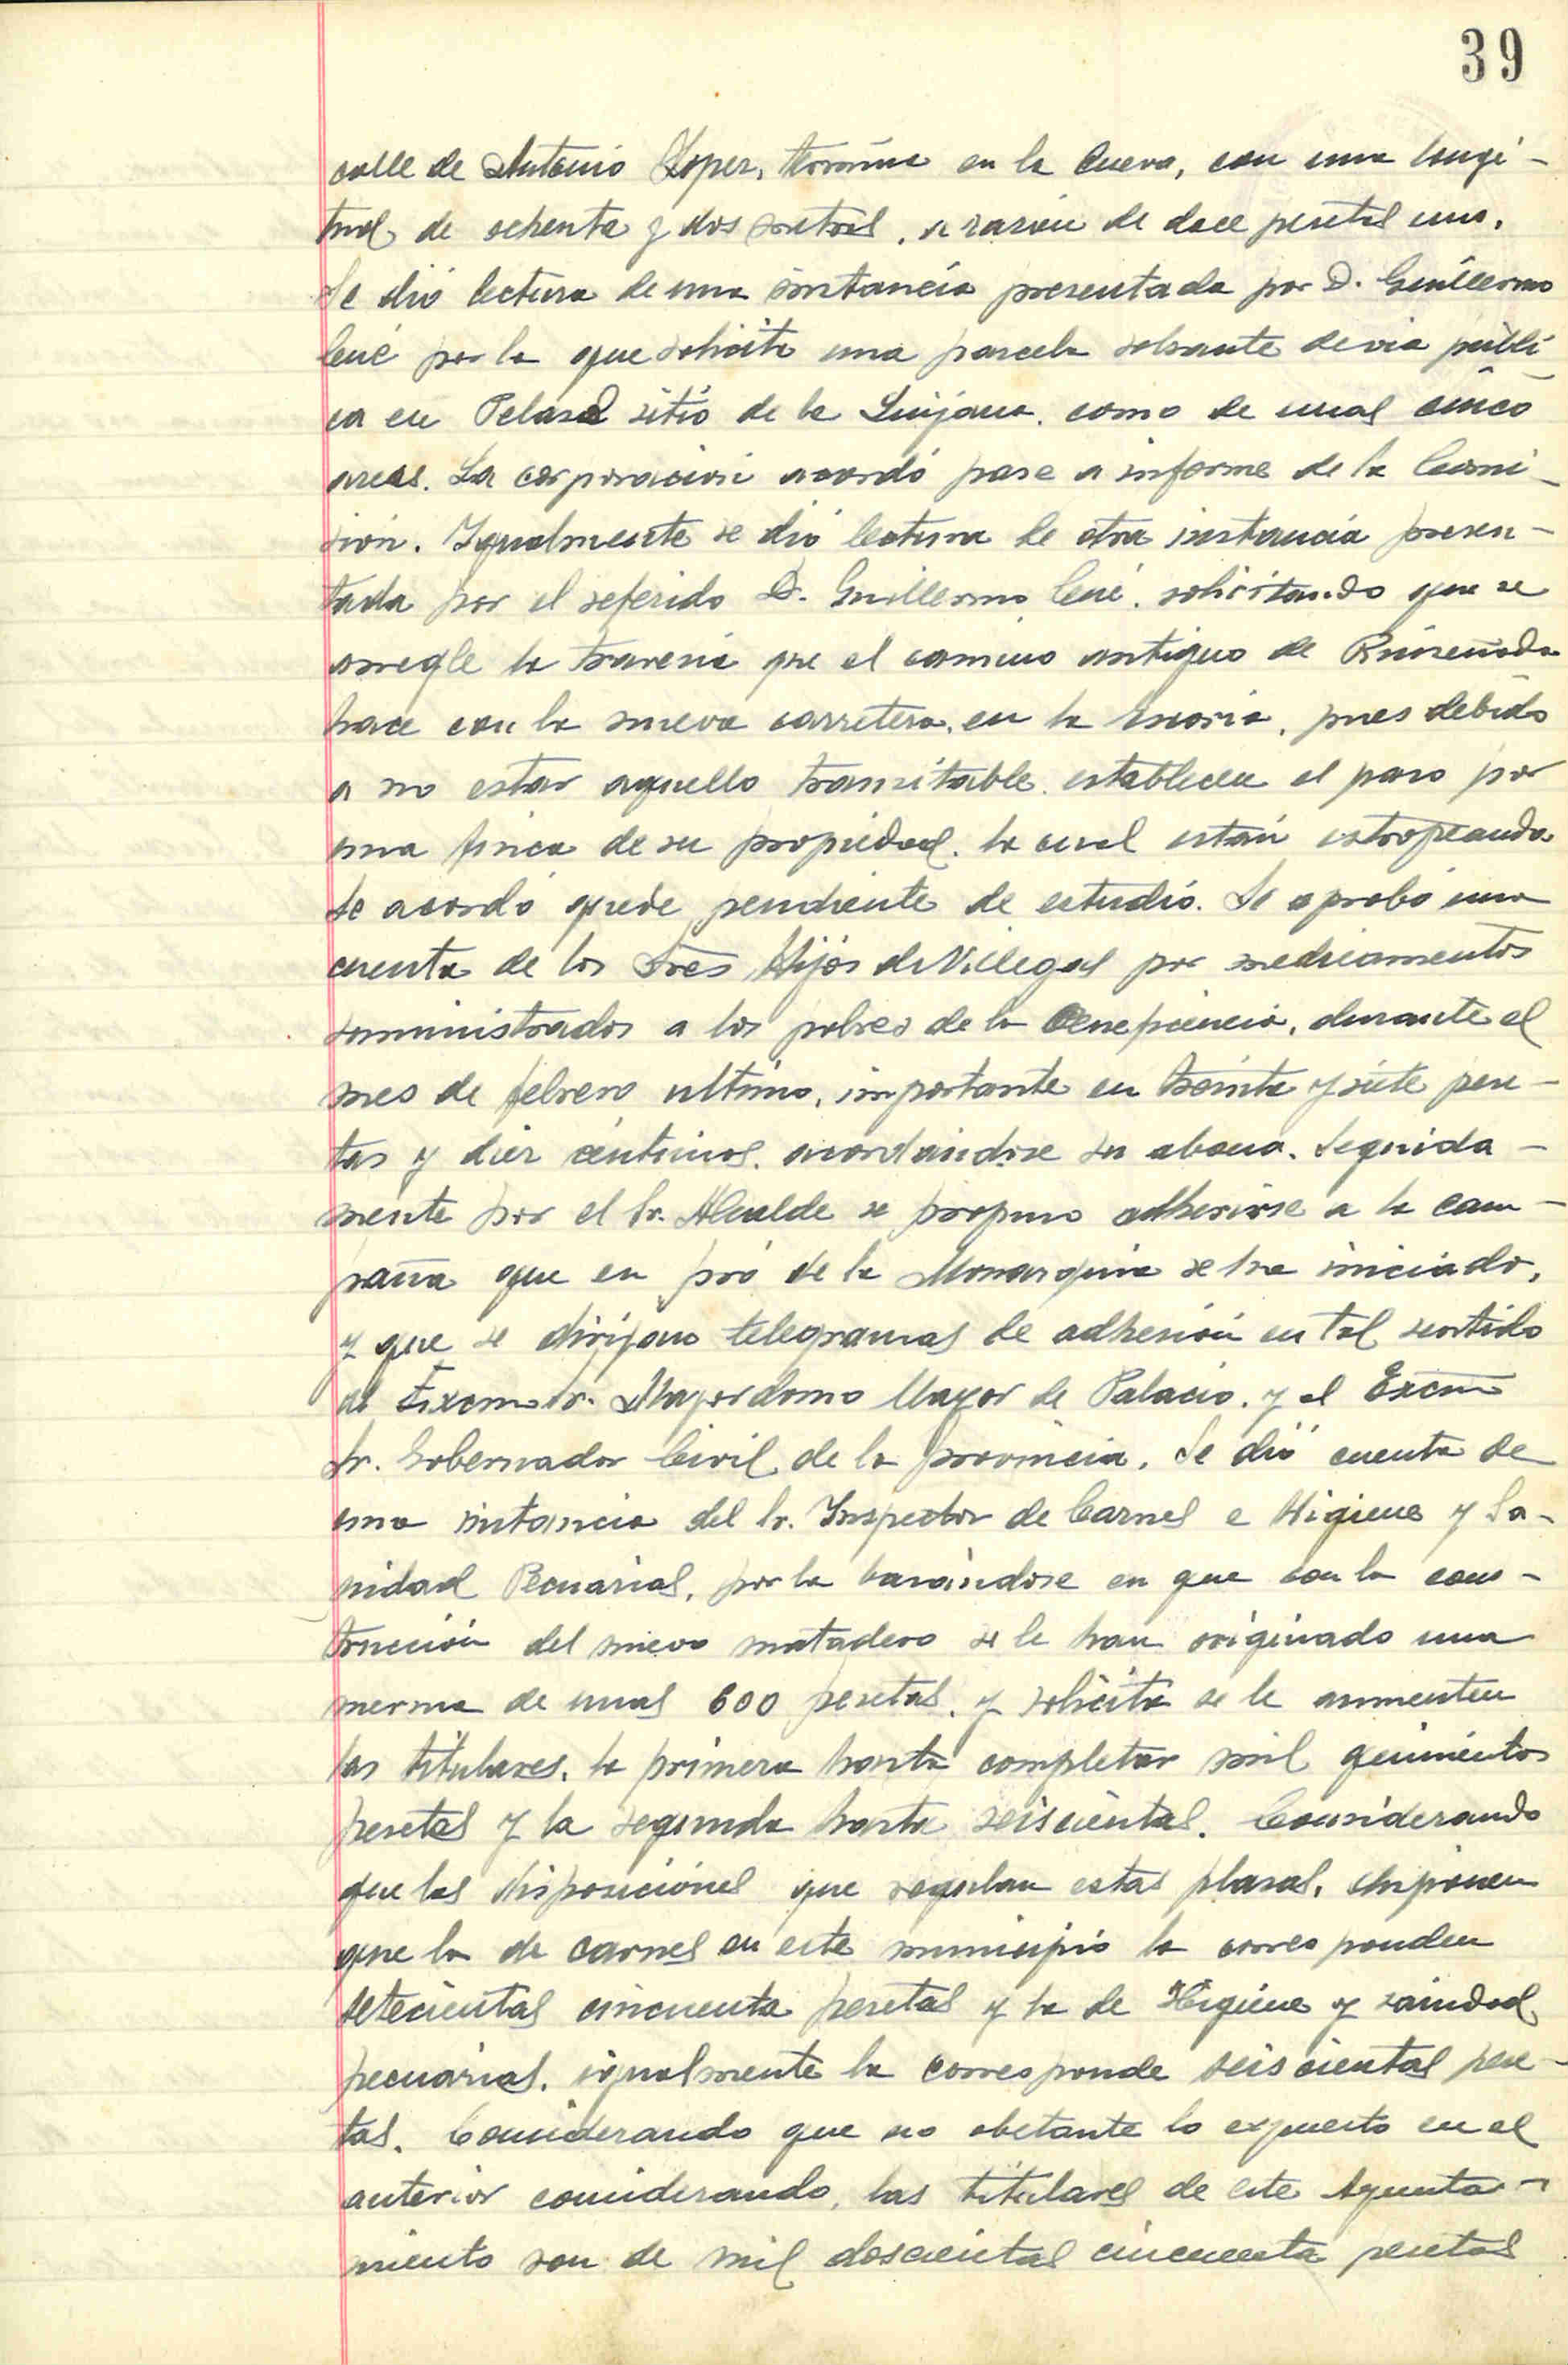 39
calle de Antonio Lopez, termina en la Cueva, con una longi-
tud de ochenta y dos metros, a razón de doce pesetas uno.
Se dió lectura de una instancia presentada por D. Guillermo
Cué por la que solicita una parcela sobrante de via públi-
ca en Pelasd sitio de la Luijana, como de unas cinco
areas. La corporación acordó pase a informe de la Comi-
sión. Igualmente se dió lectura de otra instancia presen-
tada por el referido D. Guillermo Cué, solicitando que se
arregle la travesia que el camino antiguo de
hace con la nueva carretera, en la Escoria, pues debido
a no estar aquello transitable, establecen el paso por
una finca de su propiedad, la cual están estropeando.
Se acordó quede pendiente de estudio. Se aprobó una
cuenta de los Sres Hijos de Villegas por medicamentos
suministrados a los pobres de la Beneficencia, durante el
mes de febrero ultimo, importante en treinta y siete pese-
tas y diez céntimos, acordándose su abono. Seguida-
mente por el Sr. Alcalde se propuso adherirse a la cam-
paña que en pró de la Monarquia se ha iniciado,
y que se dirijan telegramas de adhesión en tal sentido
al Excmo Sr. Mayordomo Mayor de Palacio, y al Excmo
Sr. Gobernador Civil de la provincia. Se dió cuenta de
una instancia del Sr. Inspector de Carnes e Higiene y Sa-
nidad Pecuarias, por la basándose en que con la cons-
trucción del nuevo matadero se le han originado una
merma de unas 600 pesetas, y solicita se le aumenten
las titulares, la primera hasta completar mil quinientos
pesetas y la segunda hasta seiscientas. Considerando
que las disposiciónes que regulan estas plazas, disponen
que la de carnes en este municipio la corresponden
setecientas cincuenta pesetas y la de Higiene y sanidad
pecuarias, igualmente la corresponde seiscientas pese-
tas. Considerando que no obstante lo expuesto en el
anterior considerando, las titulares de este Ayunta-
miento son de mil doscientas cincuenta pesetas